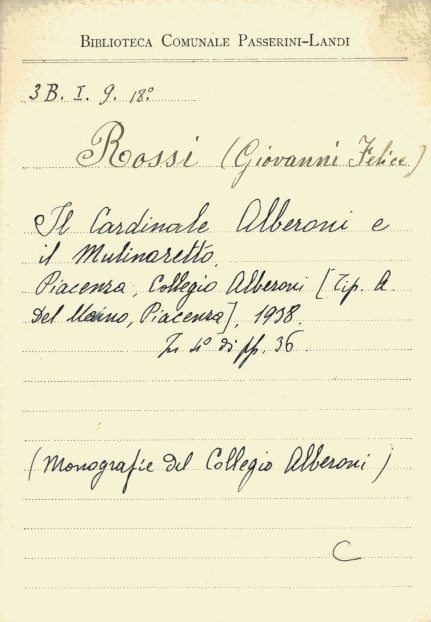 BIBLIOTECA COMUNALE PASSERINI-LANDI
3 B. I. 9. 18º
Rossi (Giovanni Felice)
Il Cardinale Alberoni e
il Mulinaretto.
Piacenza, Collegio Alberoni [Tip. A.
Del Maino, Piacenza], 1938.
In 4º di pp. 36.
(Monografie del Collegio Alberoni)
C